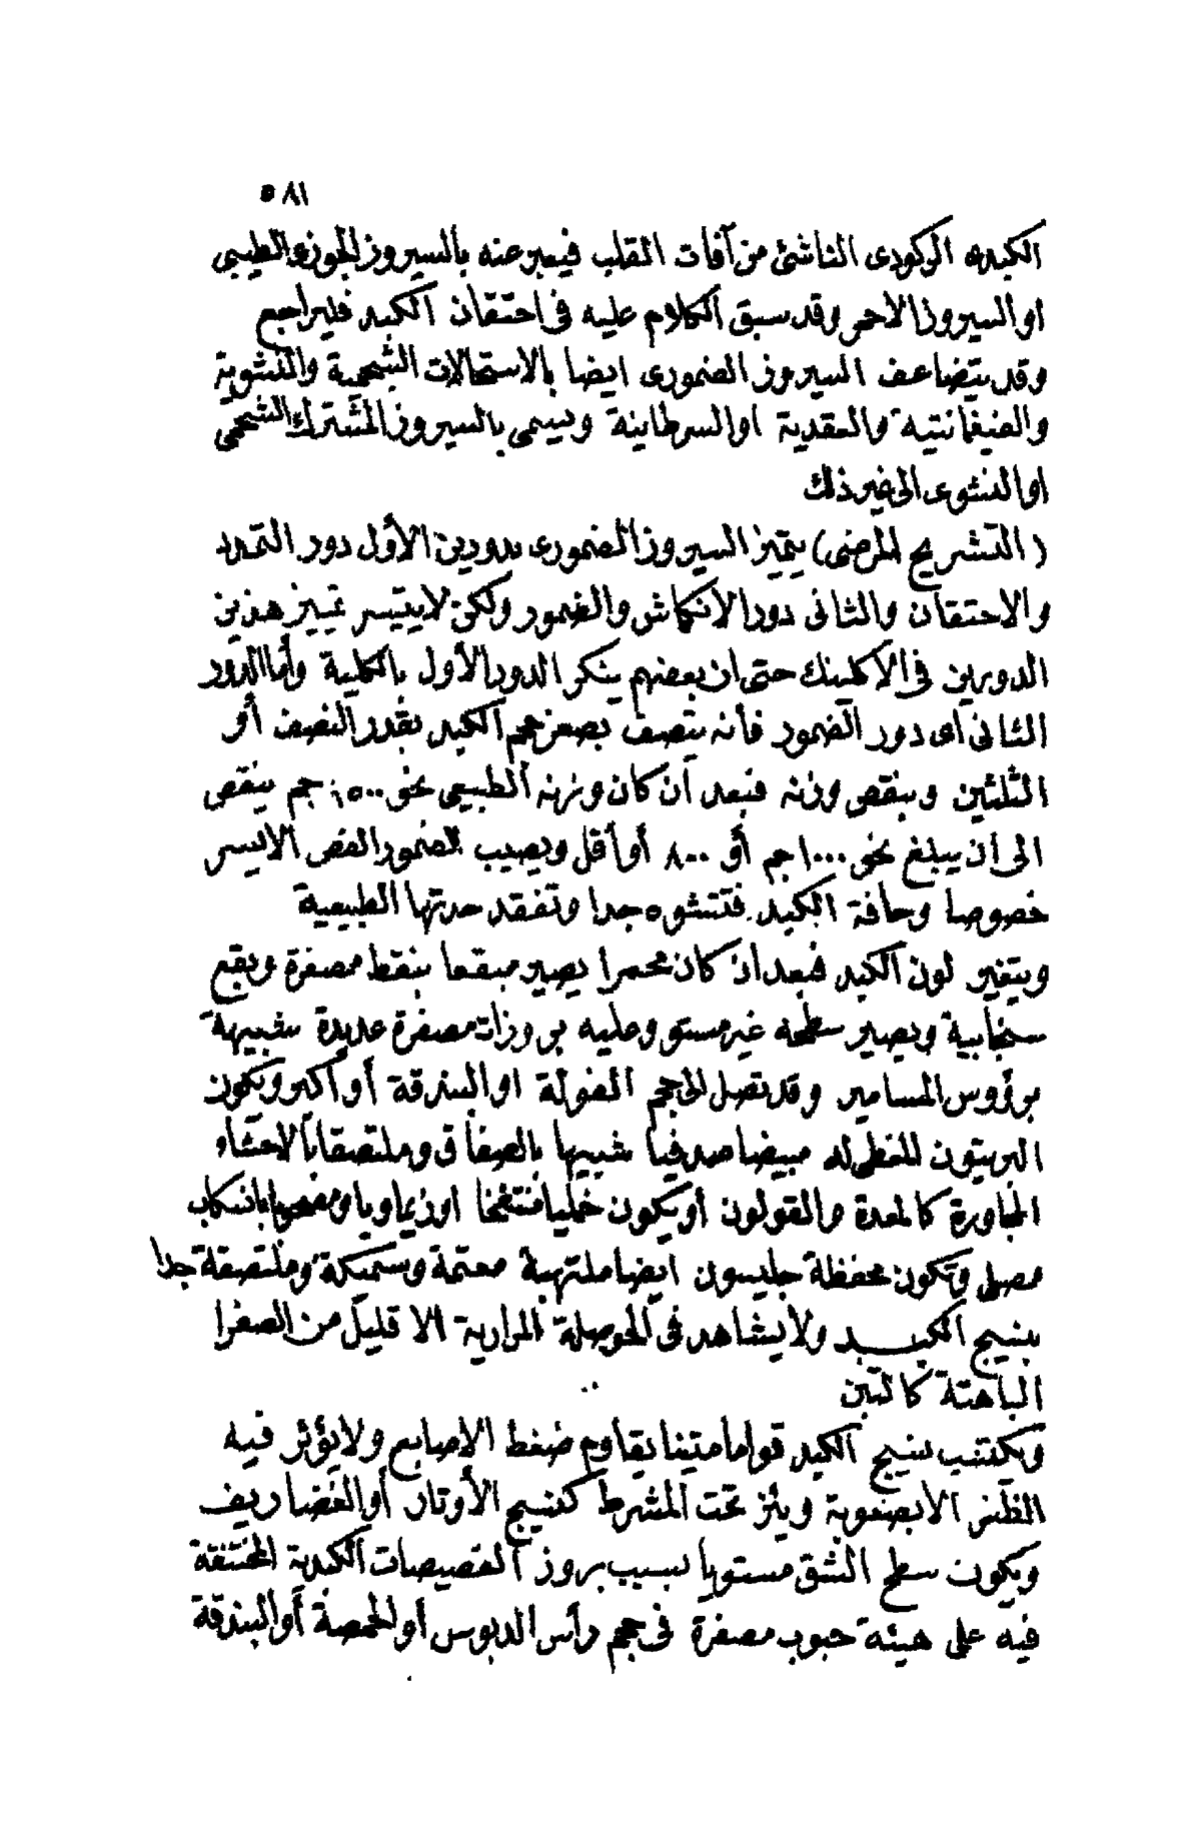 ٥٨١
الكبده الركودى الناشئ من آفات القلب فيعبر عنه بالسيروز الجوزى الطيبى
او السيروز الاحمر وقد سبق الكلام عليه فى احتقان الكبد فليراجع
وقد يتضاعف السيروز الضمورى ايضا بالاستحالات الشحمية والنشوية
والصيغمانتيه والعقدية او السرطانية ويسمى بالسيروز المشترك الشحمى
او النشوى الى غير ذلك
( التشريح المرضى) يتميز السيروز الضمورى بدورين الأول دور التمدد
والاحتقان والثانى دور الانكماش والضمور ولكن لا يتيسر تمييز هذين
الدورين فى الاكلينك حتى ان بعضهم ينكر الدور الأول بالكلية وأما الدور
الثانى اى دور الضمور فأنه يتصف بصغر حجم الكبد بقدر النصف أو
الثلثين وينقص وزنه فبعد أن كان وزنه الطبيعى نحو ١٥٠٠ جم ينقص
الى أن يبلغ نحو ١٠٠٠ جم أو ٨٠٠ أو أقل ويصيب الضمور الفص الايسر
خصوصا وحافة الكبد فتتشوه جدا وتفقد حدتها الطبيعية
ويتغير لون الكبد فبعد ان كان محمرا يصير مبقعا بنقط مصفرة وبقع
سنجابية ويصير سطحه غير مستو وعليه بروزات مصفرة عديدة شبيهة
برؤوس المسامير وقد تصل الى حجم الفولة او البندقة أو أكبر ويكون
البريتون المغطى له مبيضا صدفيا شبيها بالصفاق وملتصقا بالاحشاء
المجاورة كالمعدة والقولون أو يكون خليا منتفخا اوزيماويا ومصحوبا بانسكاب
مصلى وتكون محفظة جليسون ايضا ملتهبة معتمة وسميكة وملتصقة جدا
بنسيج الكبد ولا يشاهد فى الحوصلة المرارية الا قليل من الصفرا
الباهتة كالتبن
ويكتسب نسيج الكبد قواما متينا يقاوم ضغط الاصابع ولا يؤثر فيه
الظفر الا بصعوبة ويئز تحت المشرط كنسيج الأوتار أو الغضاريف
ويكون سطح الشق مستويا بسبب بروز الفصيصات الكبدية المختنقة
فيه على هيئة حبوب مصفرة فى حجم رأس الدبوس أو الحمصة أو البندقة